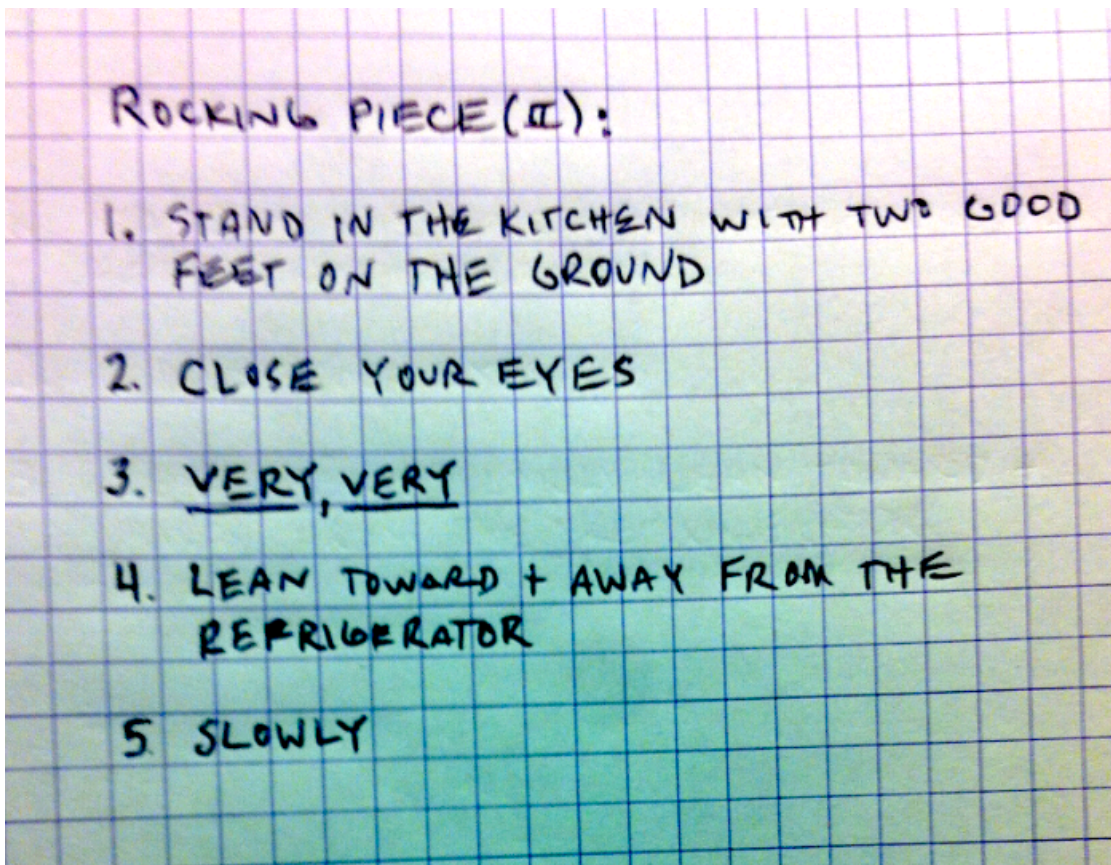 ROCKING PIECE (II):
1. STAND IN THE KITCHEN WITH TWO GOOD
FEET ON THE GROUND
2. CLOSE YOUR EYES
3. VERY, VERY
4. LEAN TOWARD + AWAY FROM THE
REFRIGERATOR
5 SLOWLY